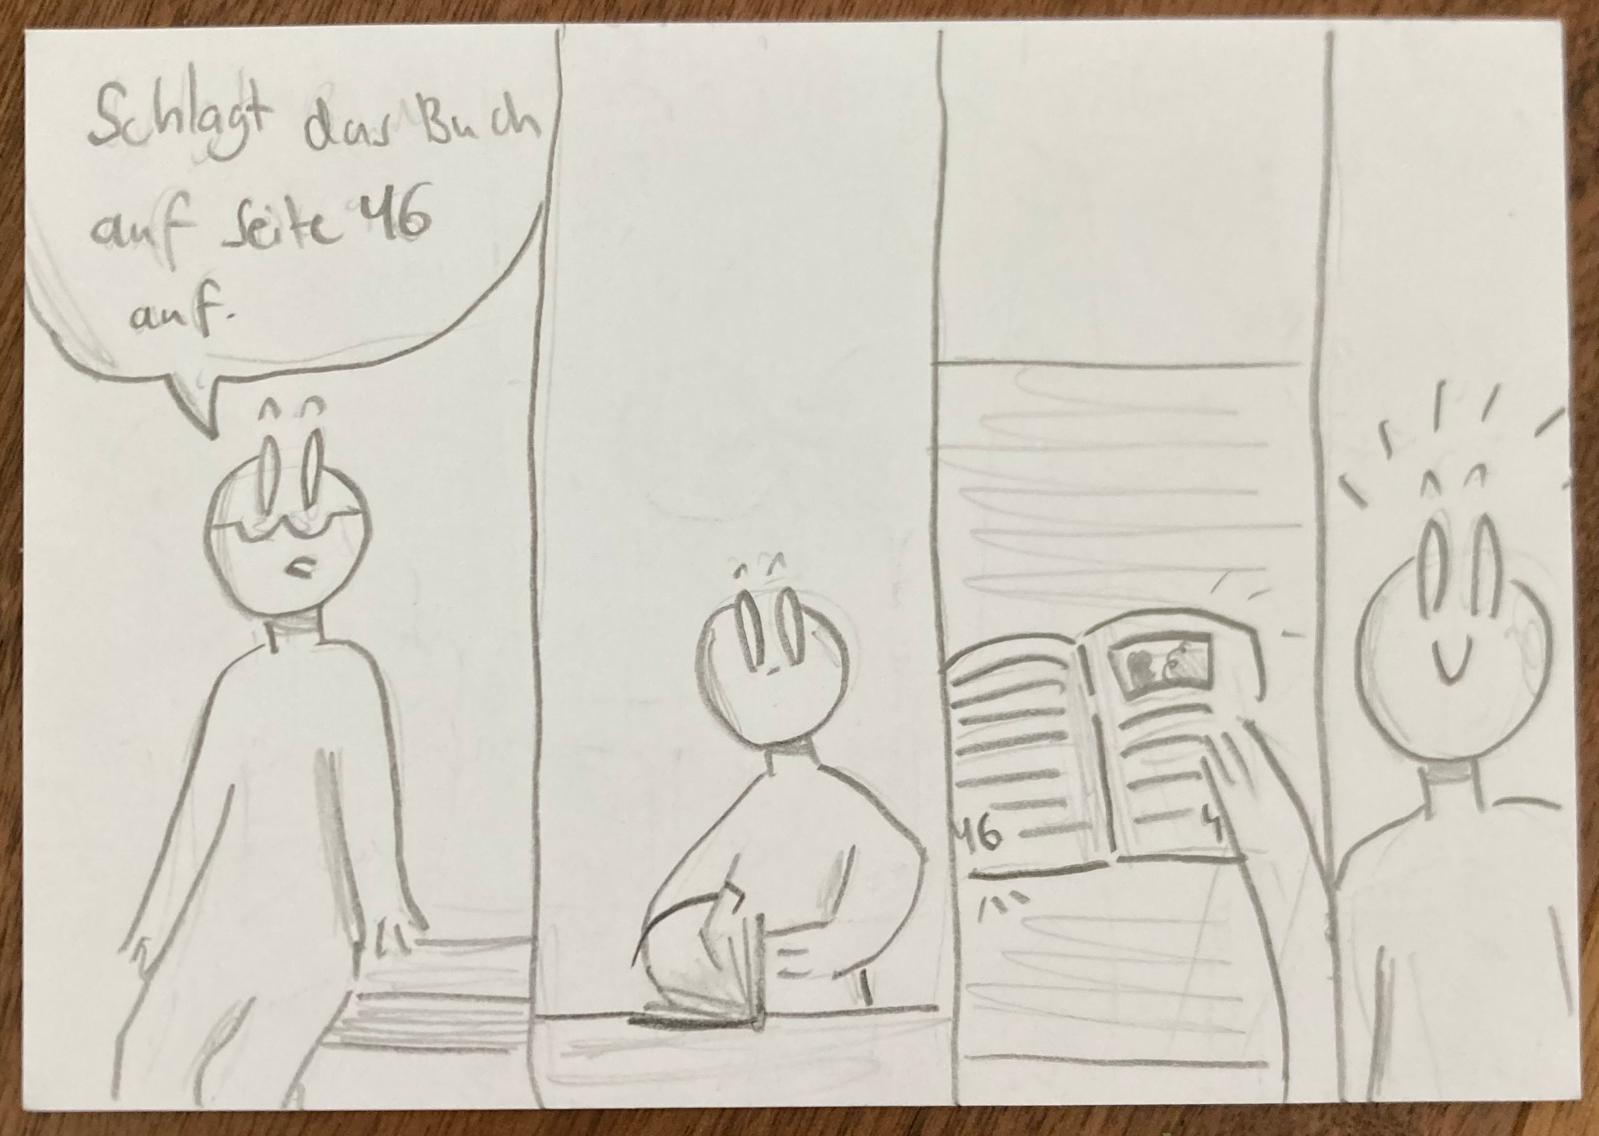 Schlagt das Buch
auf Seite 46
auf.
46
4